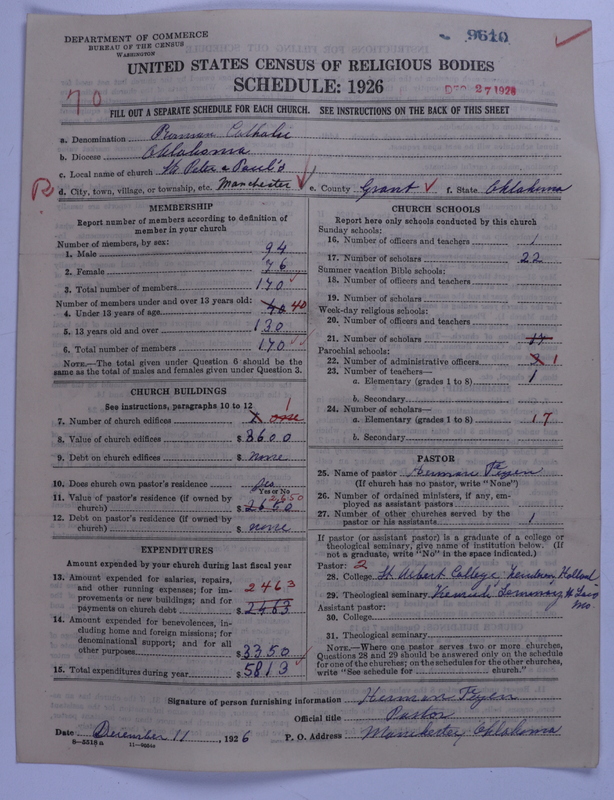 DEPARTMENT OF COMMERCE
BUREAU OF THE CENSUS
WASHINGTON
9610
UNITED STATES CENSUS OF RELIGIOUS BODIES
SCHEDULE: 1926
DEC 27 1926
70
FILL OUT A SEPARATE SCHEDULE FOR EACH CHURCH. SEE INSTRUCTIONS ON THE BACK OF THIS SHEET
a. Denomination Roman Catholic
b. Diocese Oklahoma
c. Local name of church St Peter & Paul's
R d. City, town, village, or township, etc. Manchester e. County Grant f. State Oklahoma
MEMBERSHIP
Report number of members according to definition of member in your church
Number of members, by sex:
1. Male 94
2. Female 76
3. Total number of members 170
Number of members under and over 13 years old:
4. Under 13 years of age 40 40
5. 13 years old and over 130
6. Total number of members 170
NOTE.—The total given under Question 6 should be the same as the total of males and females given under Question 3.
CHURCH BUILDINGS
See instructions, paragraphs 10 to 12
7. Number of church edifices 1 one
8. Value of church edifices $ 8600
9. Debt on church edifices $ none
10. Does church own pastor's residence yes
Yes or No
11. Value of pastor's residence (if owned by church) $ 2650 2650
12. Debt on pastor's residence (if owned by church) $ none
EXPENDITURES
Amount expended by your church during last fiscal year
13. Amount expended for salaries, repairs, and other running expenses; for improvements or new buildings; and for payments on church debt $ 2463 2463
14. Amount expended for benevolences, including home and foreign missions; for denominational support; and for all other purposes $ 3350
15. Total expenditures during year $ 5813
CHURCH SCHOOLS
Report here only schools conducted by this church
Sunday schools:
16. Number of officers and teachers 1
17. Number of scholars 22
Summer vacation Bible schools:
18. Number of officers and teachers
19. Number of scholars
Week-day religious schools:
20. Number of officers and teachers
21. Number of scholars 17
Parochial schools:
22. Number of administrative officers 1
23. Number of teachers—
a. Elementary (grades 1 to 8) 1
b. Secondary
24. Number of scholars—
a. Elementary (grades 1 to 8) 17
b. Secondary
PASTOR
25. Name of pastor Herman Feyen
(If church has no pastor, write "None")
26. Number of ordained ministers, if any, employed as assistant pastors
27. Number of other churches served by the pastor or his assistants 1
If pastor (or assistant pastor) is a graduate of a college or theological seminary, give name of institution below. (If not a graduate, write "No" in the space indicated.)
Pastor: 2
28. College St Albert College, Holland
29. Theological seminary Kenrick Seminary, St Louis Mo.
Assistant pastor:
30. College
31. Theological seminary
NOTE.—Where one pastor serves two or more churches, Questions 28 and 29 should be answered only on the schedule for one of the churches; on the schedules for the other churches, write "See schedule for church."
Signature of person furnishing information Herman Feyen
Official title Pastor
Date December 11, 1926 P. O. Address Manchester, Oklahoma
8—5518 a 11—9004